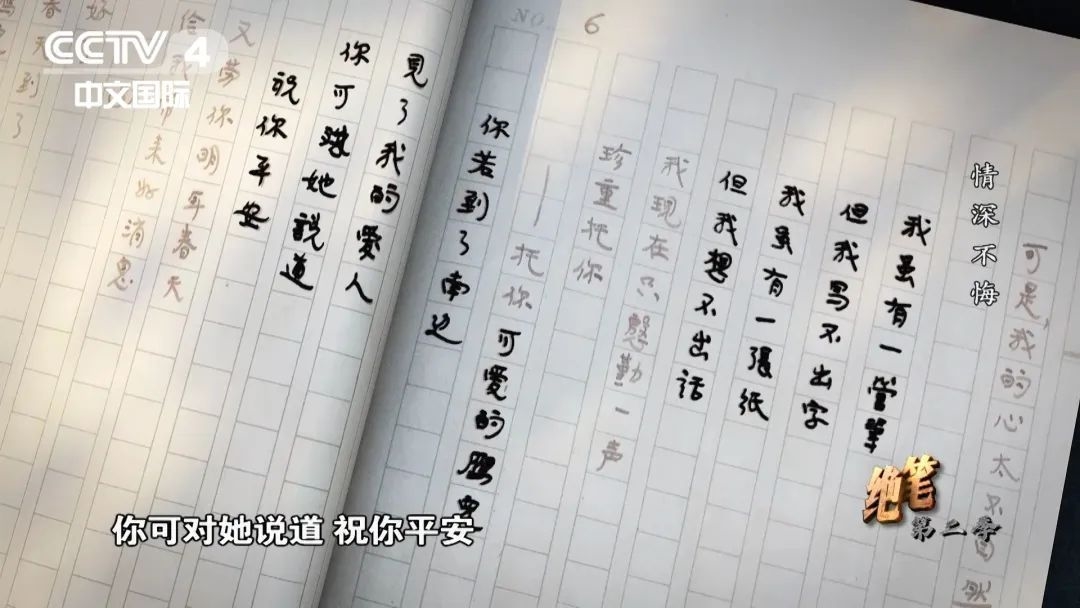 CCTV 4
中文国际
NO. 6
情深不悔
可是我的心太不自然
我虽有一管筆
但我写不出字
我虽有一張纸
但我想不出话
我现在只慇勤一声
珍重托你
——托你可愛的雁兒
你若到了南边
見了我的愛人
你可對她說道
祝你平安
又劳你明年春天
给我来好消息
到了
绝笔
第二季
你可对她说道 祝你平安